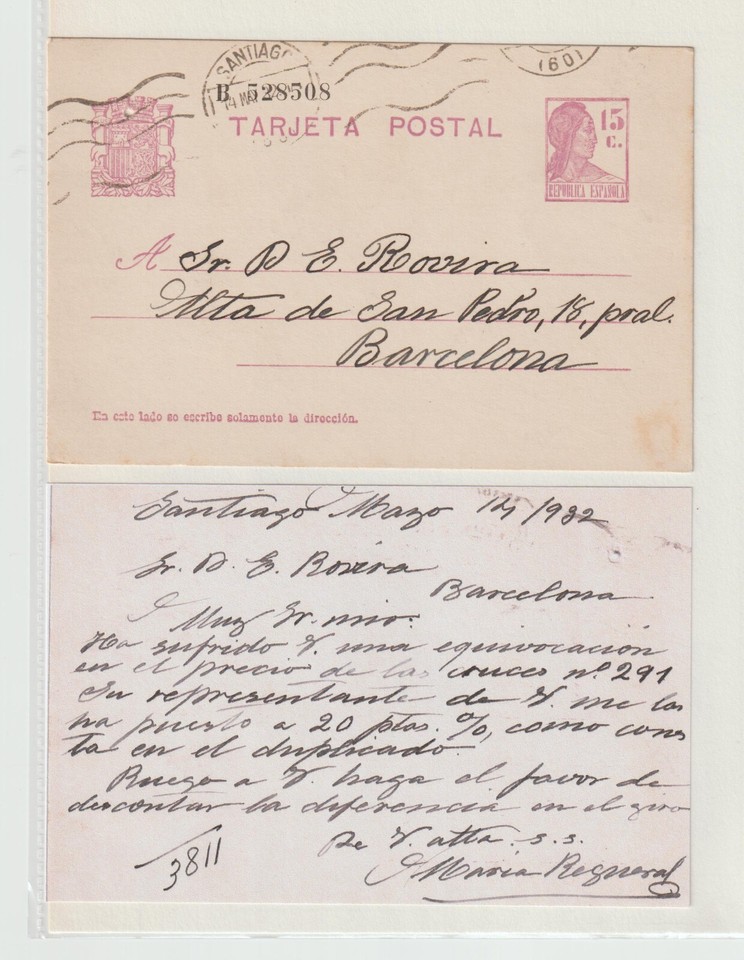 SANTIAGO
14 MAY
(60)
B 528508
TARJETA POSTAL
15 c.
REPUBLICA ESPAÑOLA
A Sr. D E. Rovira
Alta de San Pedro, 18, pral.
Barcelona
En este lado se escribe solamente la dirección.
Santiago Mayo 14/932
Sr. D. E. Rovira
Barcelona
Muy Sr. mio:
Ha sufrido V. una equivocación
en el precio de las cruces nº 291
Su representante de V. me las
ha puesto a 20 ptas. %, como cons
ta en el duplicado.
Ruego a V. haga el favor de
descontar la diferencia en el giro
De V. atta. s.s.
María Regueral
3811